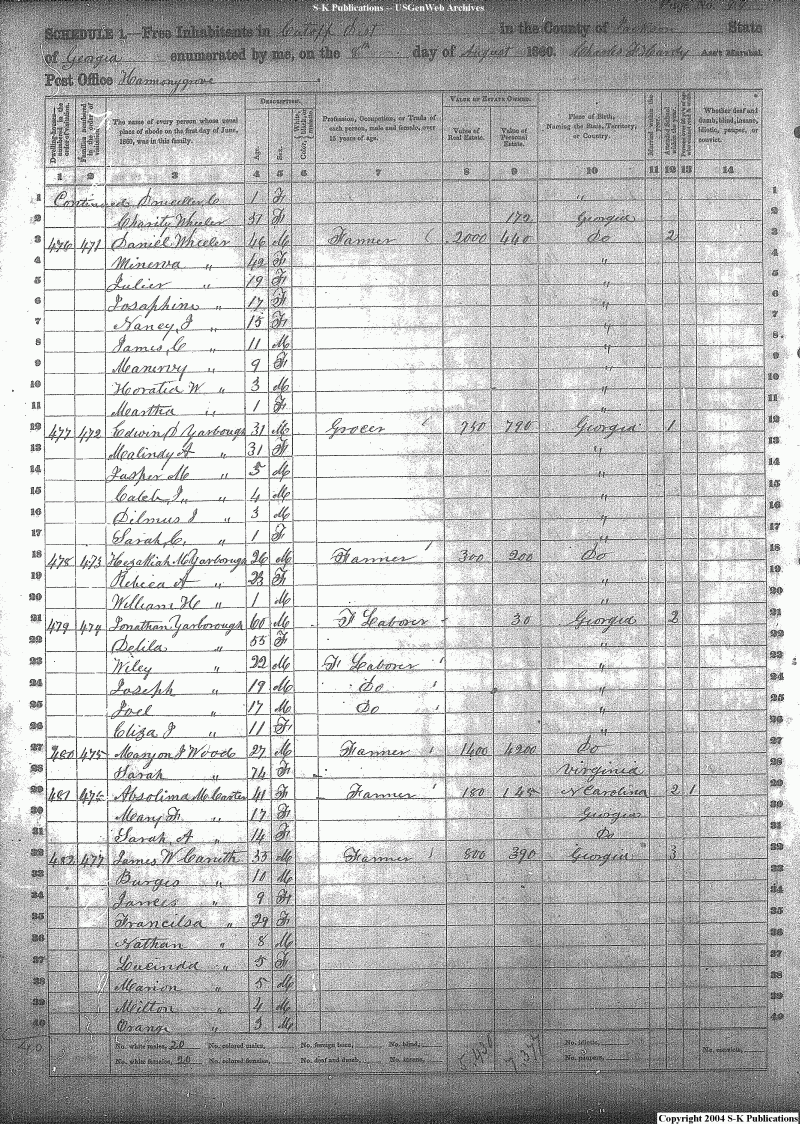 S-K Publications -- USGenWeb Archives
Page No. 59
SCHEDULE 1.—Free Inhabitants in Cutoff Dist in the County of Jackson State
of Georgia enumerated by me, on the 8th day of August 1860. Charles Hardy Ass't Marshal.
Post Office Harmonygrove
Dwelling-houses—numbered in the order of visitation.
Families numbered in the order of visitation.
The name of every person whose usual place of abode on the first day of June, 1860, was in this family.
DESCRIPTION.
Age.
Sex.
Color, White, black, or mulatto.
Profession, Occupation, or Trade of each person, male and female, over 15 years of age.
VALUE OF ESTATE OWNED.
Value of Real Estate.
Value of Personal Estate.
Place of Birth, Naming the State, Territory, or Country.
Married within the year.
Attended School within the year.
Whether deaf and dumb, blind, insane, idiotic, pauper, or convict.
1 2 3 4 5 6 7 8 9 10 11 12 13 14
1 Continued Druciller C 1 F " 1
2 Charity Wheeler 51 F 172 Georgia 2
3 476 471 Daniel Wheeler 46 M Farmer 2000 440 Do 2 3
4 Minerva " 42 F " 4
5 Julier " 19 F " 5
6 Josaphine " 17 F " 6
7 Nancy J " 15 F " 7
8 James C " 11 M " 8
9 Manervy " 9 F " 9
10 Horatia W " 3 M " 10
11 Martha " 1 F " 11
12 477 472 Edwin D Yarbough 31 M Grocer 750 790 Georgia 1 12
13 Malindy A " 31 F " 13
14 Jasper M " 5 M " 14
15 Caleb J " 4 M " 15
16 Dilmus J " 3 M " 16
17 Sarah C, " 1 F " 17
18 478 473 Hezakiah M Yarborough 26 M Farmer 300 200 Do 18
19 Rebeca A " 23 F " 19
20 William H " 1 M " 20
21 479 474 Jonathan Yarborough 60 M F Laborer 30 Georgia 2 21
22 Delila " 55 F " 22
23 Wiley " 22 M F Laborer " 23
24 Joseph " 19 M Do " 24
25 Joel " 17 M Do " 25
26 Eliza J " 11 F " 26
27 480 475 Maryon J Wood 27 M Farmer 1400 4200 Do 27
28 Sarah " 74 F Virginia 28
29 481 476 Absolima McCarter 41 F Farmer 180 145 N Carolina 2 1 29
30 Mary F " 17 F Georgia 30
31 Sarah A " 14 F Do 31
32 482 477 James W Caruth 33 M Farmer 800 390 Georgia 3 32
33 Burges " 10 M 33
34 Jances " 9 F 34
35 Francilsa " 29 F 35
36 Nathan " 8 M 36
37 Lucinda " 5 F 37
38 Marion " 5 M 38
39 Milton " 4 M 39
40 Orange " 3 M 40
40 No. white males, 20 No. colored males, No. foreign born, No. blind, 5,430 7,377 No. idiotic,
No. white females, 20 No. colored females, No. deaf and dumb, No. insane, No. paupers, No. convicts,
Copyright 2004 S-K Publications